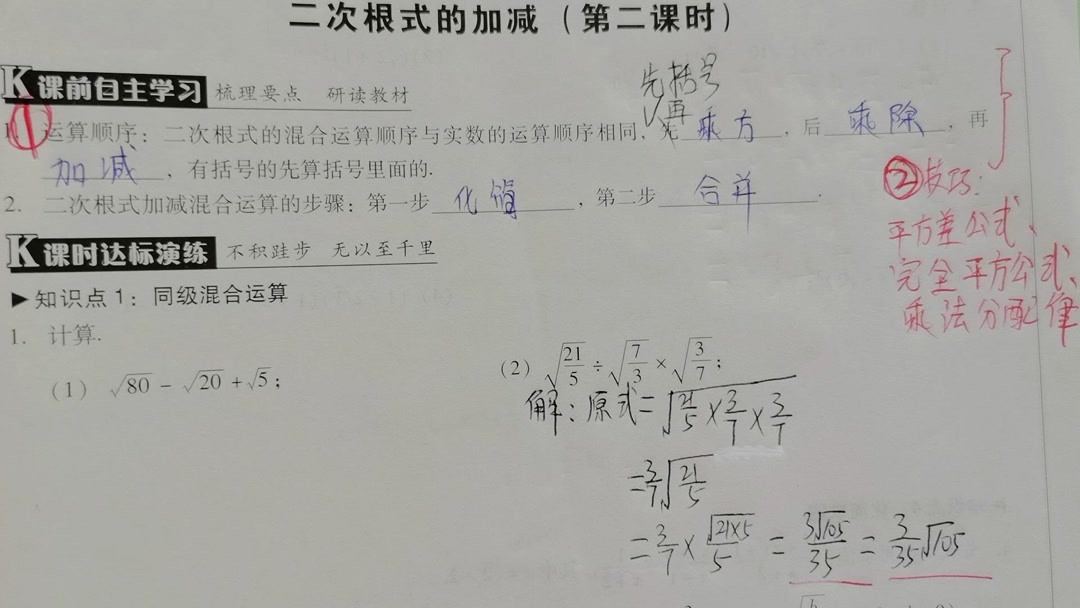 二次根式的加减（第二课时）
K 课前自主学习 梳理要点 研读教材
先括号
再
① 1. 运算顺序：二次根式的混合运算顺序与实数的运算顺序相同，先 乘方 ，后 乘除 ，再
加减 ，有括号的先算括号里面的.
2. 二次根式加减混合运算的步骤：第一步 化简 ，第二步 合并 .
②技巧：
平方差公式、
完全平方公式、
乘法分配律
K 课时达标演练 不积跬步 无以至千里
▶知识点1：同级混合运算
1. 计算.
(1) √80 - √20 + √5；
(2) √(21/5) ÷ √(7/3) × √(3/7)；
解：原式=√(21/5 × 3/7 × 3/7)
= 3/7 √(21/5)
= 3/7 × √(21×5)/5 = 3√105/35 = 3/35 √105